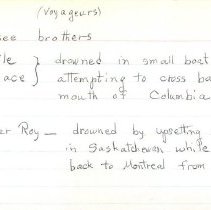 (Voyageurs)
see brothers
le } drowned in small boat
ace } attempting to cross ba
mouth of Columbia
er Roy — drowned by upsetting
in Saskatchewan while
back to Montreal from